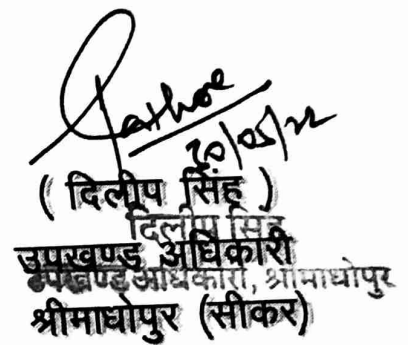 Rathore
20/05/22
( दिलीप सिंह )
दिलीप सिंह
उपखण्ड अधिकारी
उपखण्ड अधिकारी, श्रीमाधोपुर
श्रीमाधोपुर (सीकर)